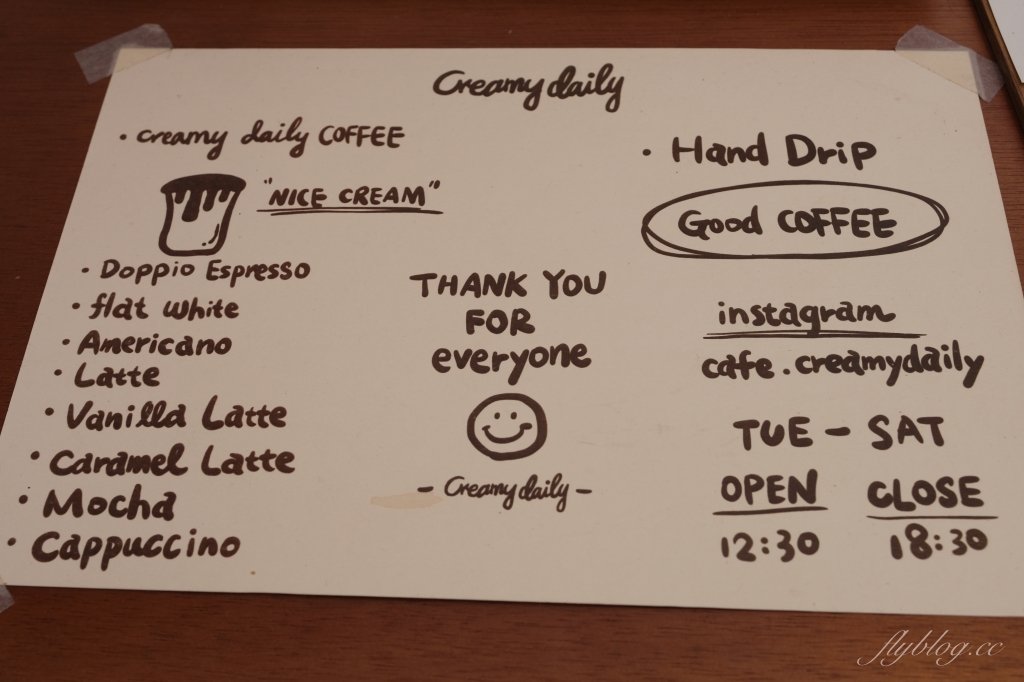 Creamy daily
· creamy daily COFFEE
"NICE CREAM"
· Doppio Espresso
· flat white
· Americano
· Latte
· Vanilla Latte
· Caramel Latte
· Mocha
· Cappuccino
THANK YOU
FOR
everyone
- Creamy daily -
· Hand Drip
Good COFFEE
instagram
cafe.creamydaily
TUE - SAT
OPEN CLOSE
12:30 18:30
flyblog.cc